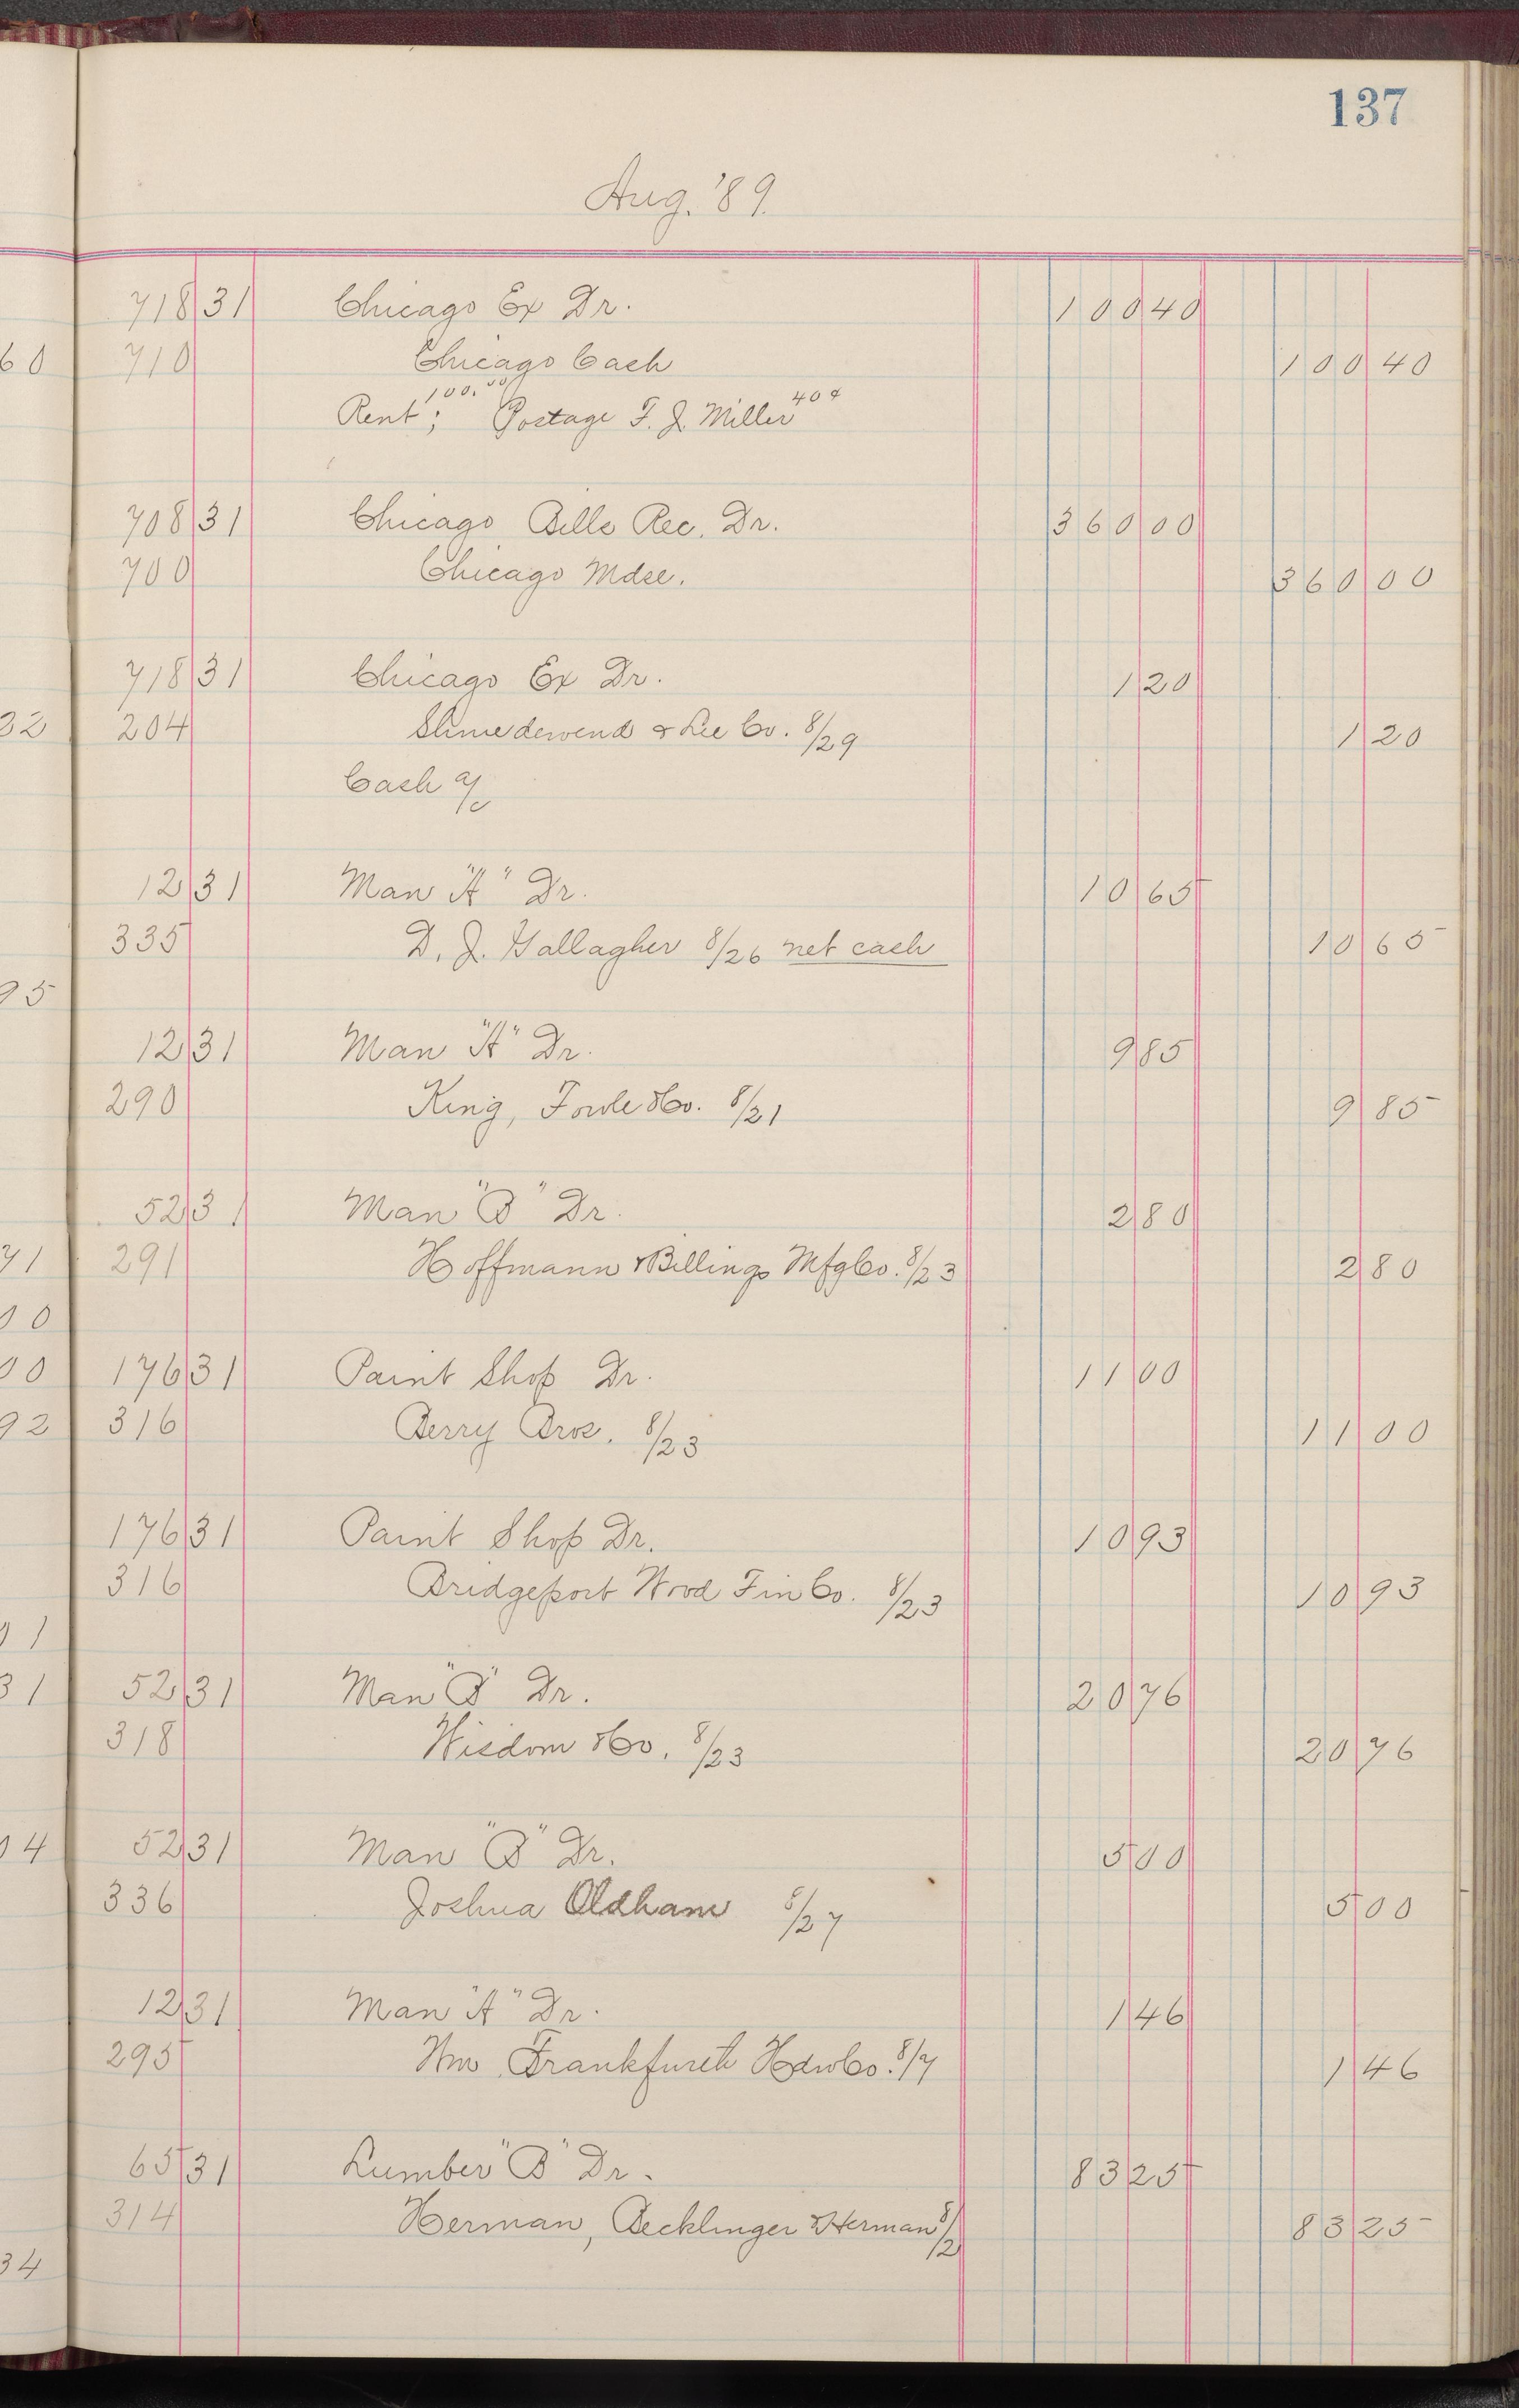 137
Aug. '89.
718 31 Chicago Ex Dr. 100 40
60 710 Chicago Cash 100 40
Rent 100.00; Postage F. J. Miller 40¢
708 31 Chicago Bills Rec. Dr. 360 00
700 Chicago Mdse. 360 00
718 31 Chicago Ex Dr. 1 20
32 204 & Lee Co. 8/29 1 20
Cash a/c
12 31 Man "A" Dr. 10 65
335 D. J. Gallagher 8/26 net cash 10 65
95
12 31 Man "A" Dr. 9 85
290 King, Fowle & Co. 8/21 9 85
52 31 Man "B" Dr. 2 80
71 291 Hoffmann & Billings Mfg Co. 8/23 2 80
00
00 176 31 Paint Shop Dr. 11 00
92 316 Berry Bros. 8/23 11 00
176 31 Paint Shop Dr. 10 93
316 Bridgeport Wood Fin Co. 8/23 10 93
91
31 52 31 Man "B" Dr. 20 76
318 Wisdom & Co. 8/23 20 76
04 52 31 Man "B" Dr. 5 00
336 Joshua Oldham 8/27 5 00
12 31 Man "A" Dr. 1 46
295 Wm Frankfurth Hdw Co. 8/7 1 46
65 31 Lumber "B" Dr. 83 25
314 Herman, Becklinger & Herman 8/2 83 25
34